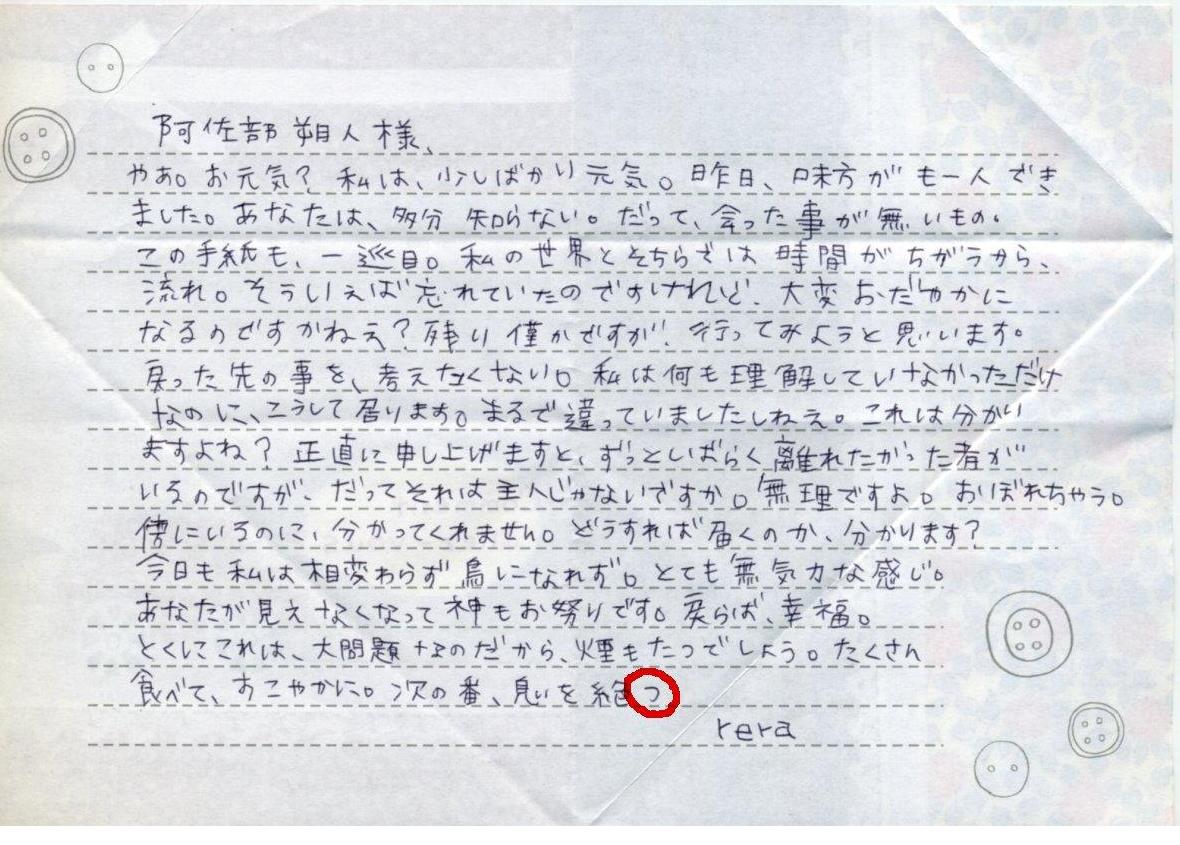 阿佐部朔人様、
やあ。お元気?私は、少しばかり元気。昨日、味方がも一人でき
ました。あなたは、多分知らない。だって、会った事が無いもの。
この手紙も、一巡目。私の世界とそちらでは時間がちがうから、
流れ。そういえば忘れていたのですけれど、大変おだやかに
なるのですかねえ?残り僅かですが、行ってみようと思います。
戻った先の事を、考えたくない。私は何も理解していなかっただけ
なのに、こうして居ります。まるで違っていましたしねえ。これは分かい
ますよね?正直に申し上げますと、ずっとしばらく離れたかった者が
いるのですが、だってそれは主人じゃないですか。無理ですよ。おぼれちゃう。
傍にいるのに、分かってくれません。どうすれば届くのか、分かります?
今日も私は相変わらず鳥になれず。とても無気力な感じ。
あなたが見えなくなって神もお努りです。戻らば、幸福。
とくにこれは、大問題なのだから、煙もたつでしょう。たくさん
食べて、すこやかに。次の番、息いを絶つ
rera